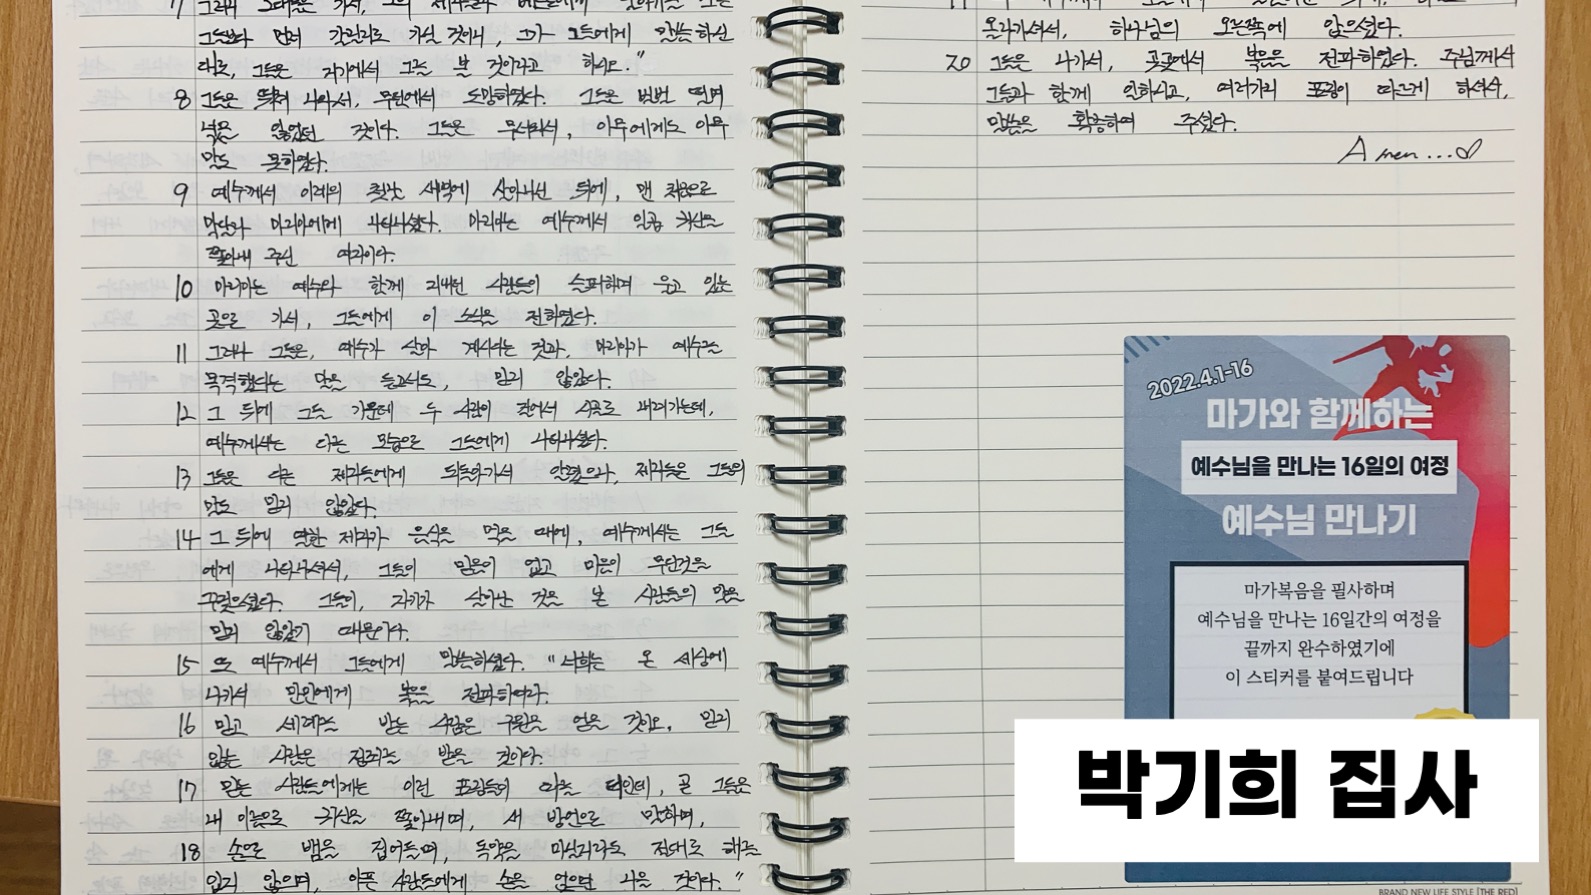 8 그들은 뛰쳐 나와서, 무덤에서 도망하였다. 그들은 벌벌 떨며
넋을 잃었던 것이다. 그들은 무서워서, 아무에게도 아무
말도 못하였다.
9 예수께서 이레의 첫날 새벽에 살아나신 뒤에, 맨 처음으로
막달라 마리아에게 나타나셨다. 마리아는 예수께서 일곱 귀신을
쫓아내 주신 여자이다.
10 마리아는 예수와 함께 지내던 사람들이 슬퍼하며 울고 있는
곳으로 가서, 그들에게 이 소식을 전하였다.
11 그러나 그들은, 예수가 살아 계시다는 것과, 마리아가 예수를
목격했다는 말을 듣고서도, 믿지 않았다.
12 그 뒤에 그들 가운데 두 사람이 걸어서 시골로 내려가는데,
예수께서는 다른 모습으로 그들에게 나타나셨다.
13 그들은 다른 제자들에게 되돌아가서 알렸으나, 제자들은 그들의
말도 믿지 않았다.
14 그 뒤에 열한 제자가 음식을 먹을 때에, 예수께서는 그들
에게 나타나셔서, 그들이 믿음이 없고 마음이 무딘것을
꾸짖으셨다. 그들이, 자기가 살아난 것을 본 사람들의 말을
믿지 않았기 때문이다.
15 또 예수께서 그들에게 말씀하셨다. "너희는 온 세상에
나가서 만민에게 복음을 전파하여라.
16 믿고 세례를 받는 사람은 구원을 얻을 것이요, 믿지
않는 사람은 정죄를 받을 것이다.
17 믿는 사람들에게는 이런 표징들이 따를 터인데, 곧 그들은
내 이름으로 귀신을 쫓아내며, 새 방언으로 말하며,
18 손으로 뱀을 집어들며, 독약을 마실지라도 절대로 해를
입지 않으며, 아픈 사람들에게 손을 얹으면 나을 것이다."
그들보다 먼저 갈릴리로 가실 것이니, 그가 그들에게 말씀하신
대로, 그들은 거기에서 그를 볼 것이라고 하시오."
올라가셔서, 하나님의 오른쪽에 앉으셨다.
20 그들은 나가서, 곳곳에서 복음을 전파하였다. 주님께서
그들과 함께 일하시고, 여러가지 표징이 따르게 하셔서,
말씀을 확증하여 주셨다.
Amen...♡
2022.4.1-16
마가와 함께하는
예수님을 만나는 16일의 여정
예수님 만나기
마가복음을 필사하며
예수님을 만나는 16일간의 여정을
끝까지 완수하였기에
이 스티커를 붙여드립니다
박기희 집사
BRAND NEW LIFE STYLE [THE RED]